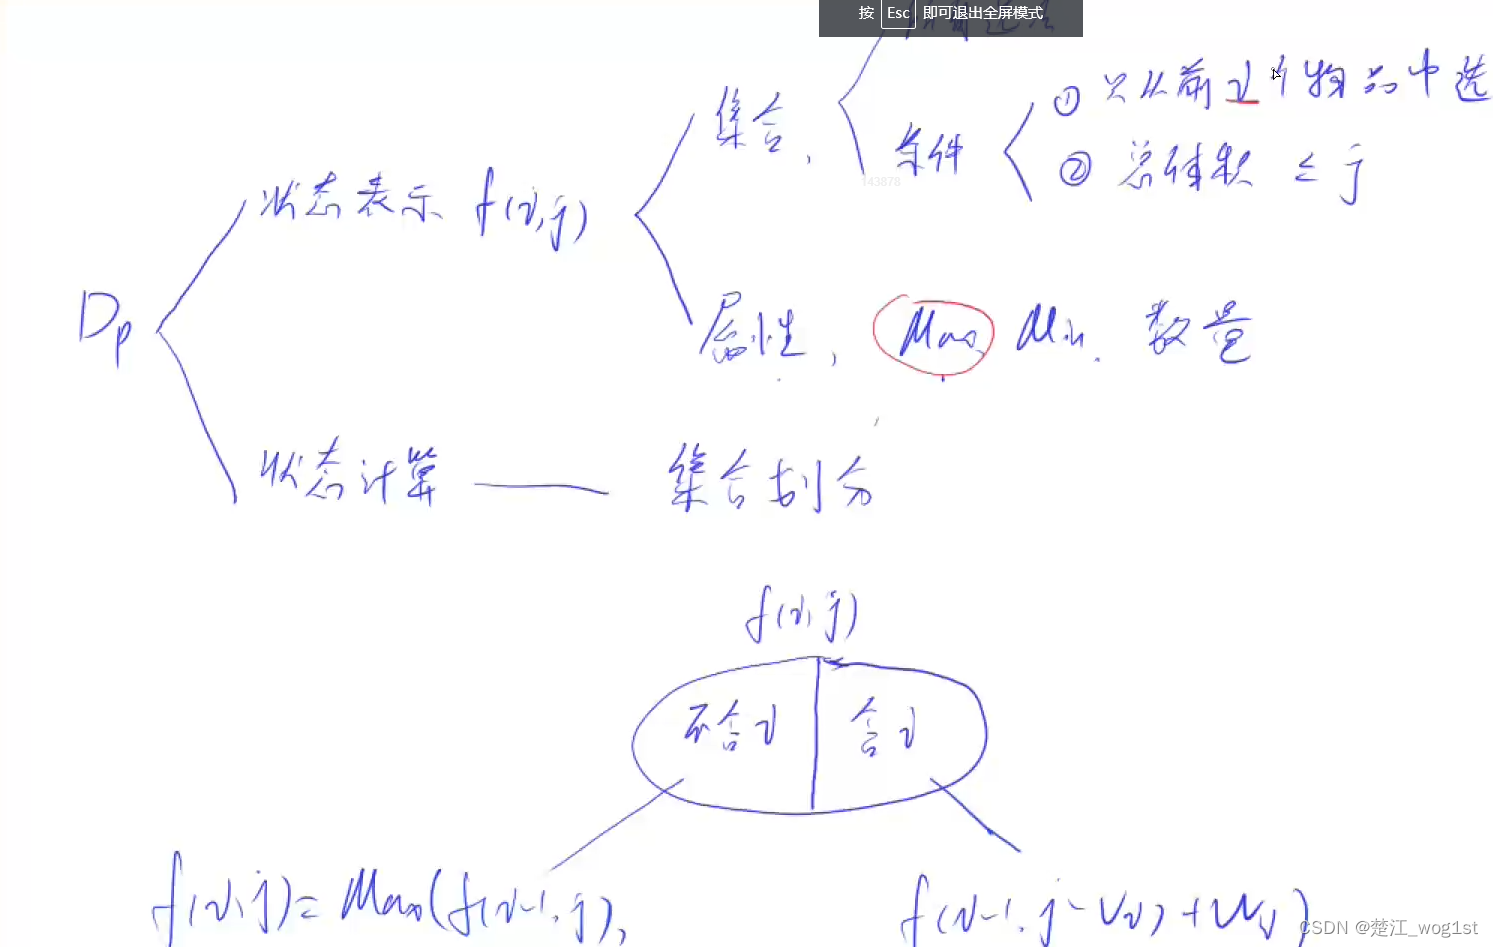 按 Esc 即可退出全屏模式
① 只从前i个物品中选
集合,
条件
② 总体积 ≤ j
143878
状态表示 f(i,j)
Dp
属性, Max Min. 数量
状态计算 —— 集合划分
f(i,j)
不含i
含i
f(i,j)= Max(f(i-1,j), f(i-1,j-Vi)+Wi)
CSDN @楚江_wog1st